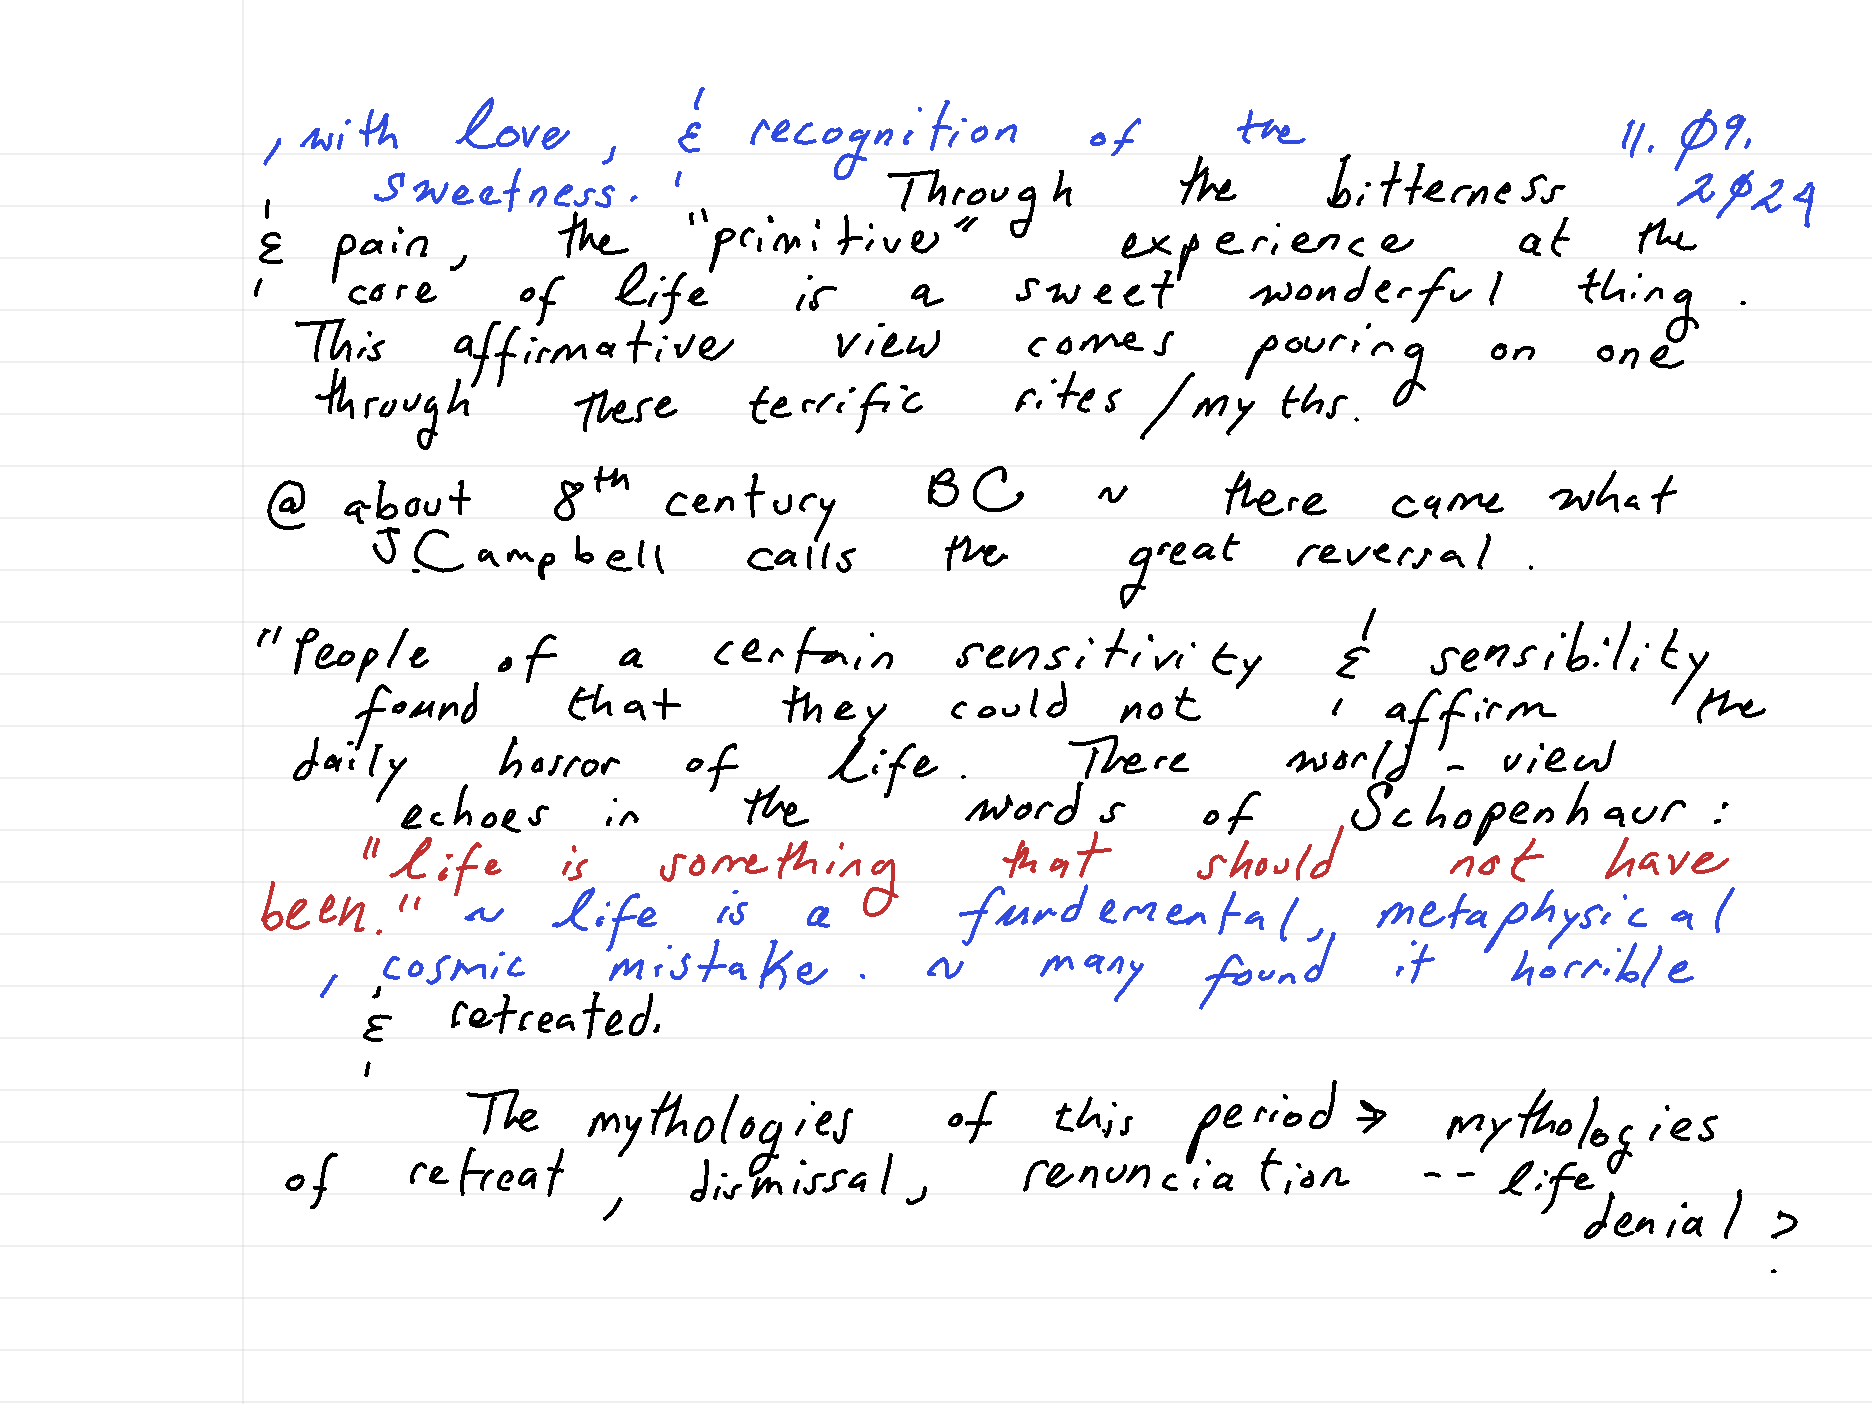 , with love, & recognition of the 11. Ø9.
sweetness. Through the bitterness 2Ø24
& pain, the "primitive" experience at the
core of life is a sweet wonderful thing.
This affirmative view comes pouring on one
through these terrific rites/myths.
@ about 8th century BC ~ there came what
J.Campbell calls the great reversal.
"People of a certain sensitivity & sensibility
found that they could not affirm the
daily horror of life. There world-view
echoes in the words of Schopenhaur:
"life is something that should not have
been." ~ life is a fundemental, metaphysical
, cosmic mistake. ~ many found it horrible
& retreated.
The mythologies of this period → mythologies
of retreat, dismissal, renunciation -- life
denial ?